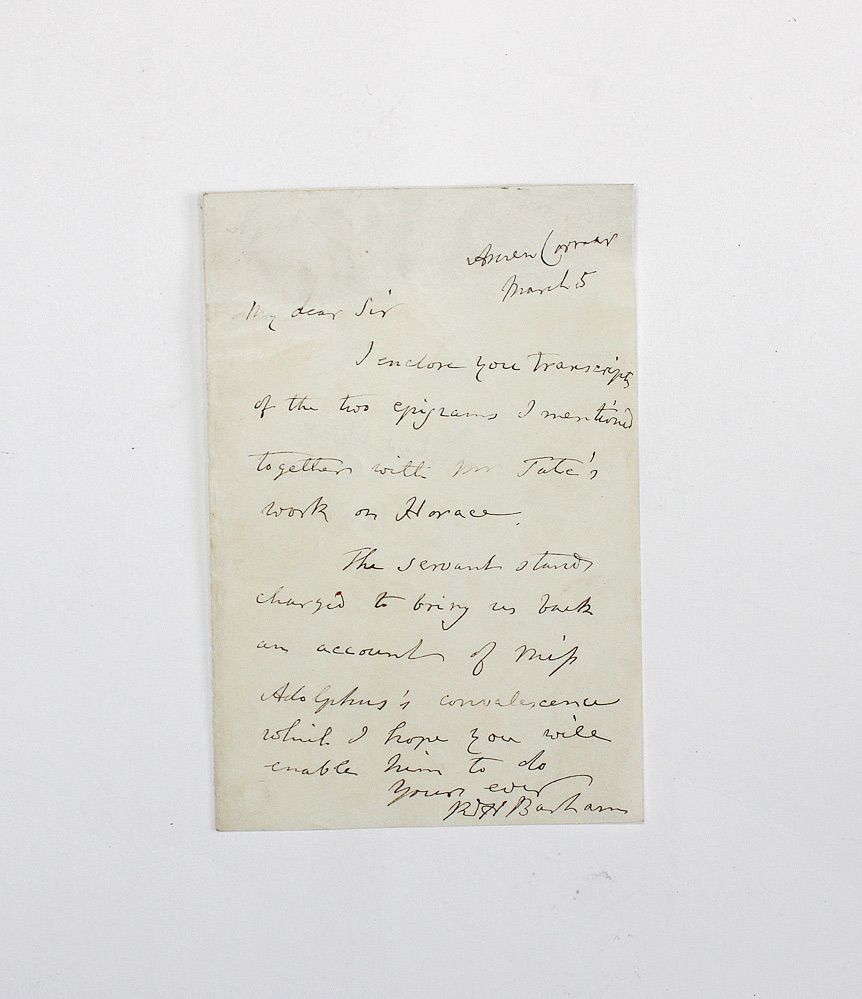 Amen Corner
March 5
My dear Sir
I enclose you transcripts
of the two epigrams I mentiond
together with Mr Tate's
work on Horace.
The servant stands
charged to bring us back
an account of Miss
Adolphus's convalescence
which I hope you will
enable him to do
Yours ever
R H Barham